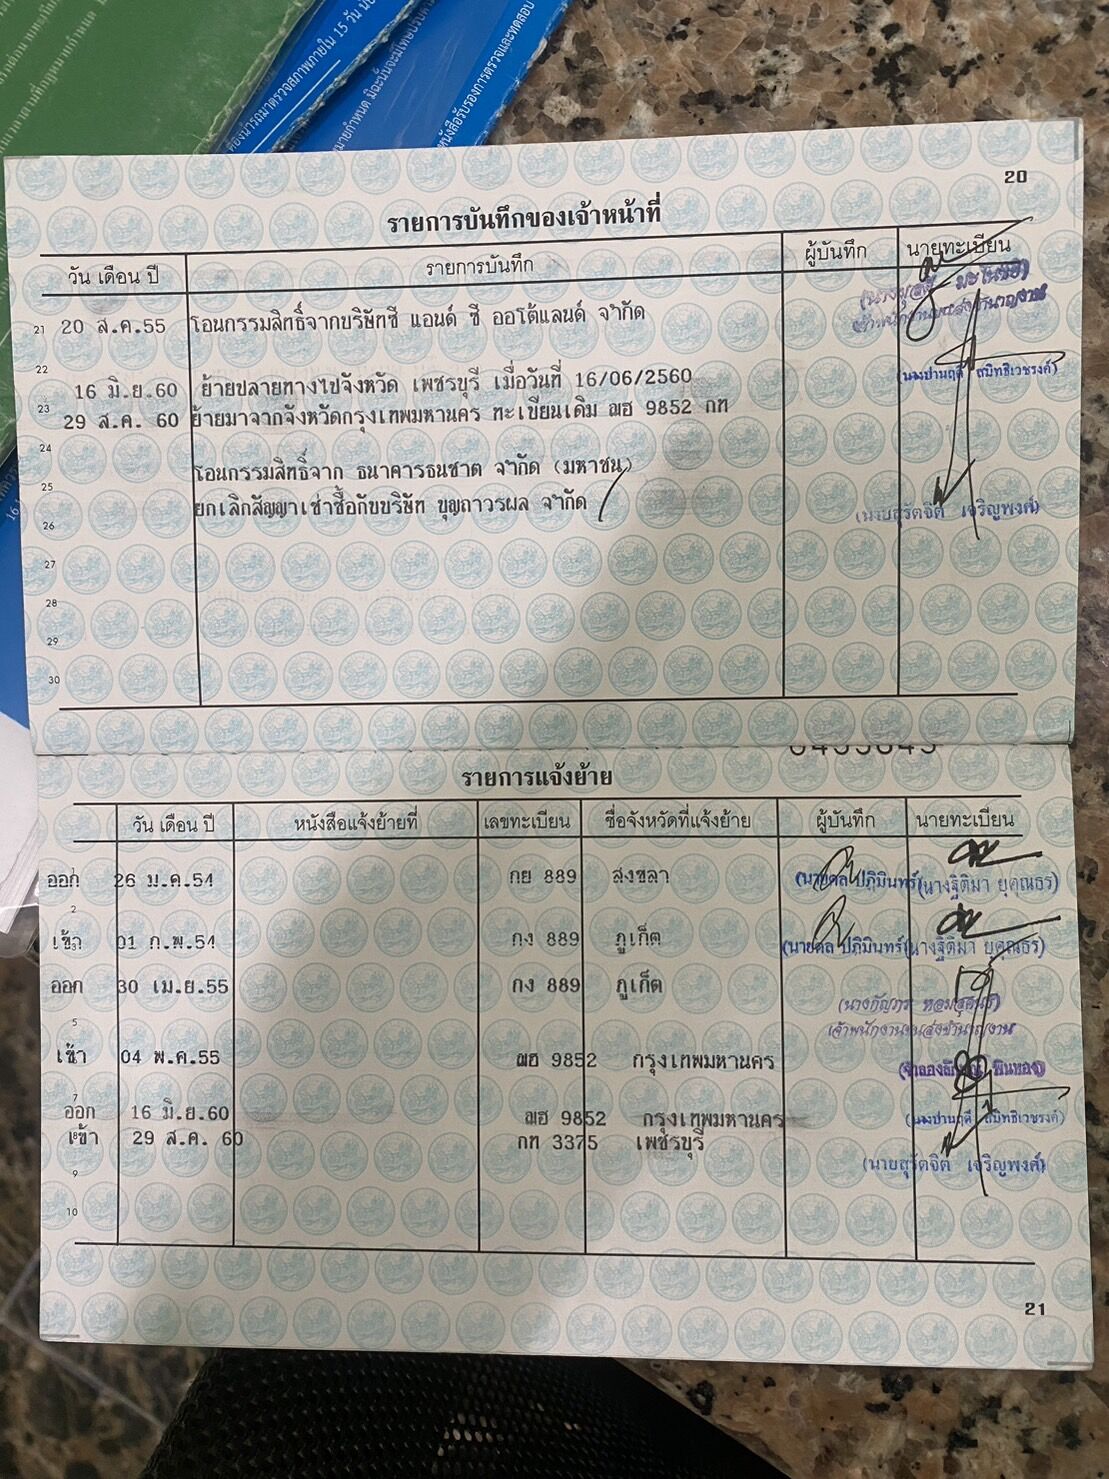 ต้องนำรถมาตรวจสภาพภายใน 15 วัน
หนังสือรับรองการตรวจและทดสอบ
20
รายการบันทึกของเจ้าหน้าที่
วัน เดือน ปี รายการบันทึก ผู้บันทึก นายทะเบียน
21 20 ส.ค.55 โอนกรรมสิทธิ์จากบริษัทซี แอนด์ ซี ออโต้แลนด์ จำกัด
22
16 มิ.ย.60 ย้ายปลายทางไปจังหวัด เพชรบุรี เมื่อวันที่ 16/06/2560 (นางปานฤดี สมิทธิเวชรงค์)
23 29 ส.ค. 60 ย้ายมาจากจังหวัดกรุงเทพมหานคร ทะเบียนเดิม ฌฮ 9852 กท
24
โอนกรรมสิทธิ์จาก ธนาคารธนชาต จำกัด (มหาชน)
25
ยกเลิกสัญญาเช่าซื้อกับบริษัท บุญถาวรผล จำกัด (นายสุรัตจิต เจริญพงศ์)
26
27
28
29
30
รายการแจ้งย้าย
วัน เดือน ปี หนังสือแจ้งย้ายที่ เลขทะเบียน ชื่อจังหวัดที่แจ้งย้าย ผู้บันทึก นายทะเบียน
ออก 26 ม.ค.54 กย 889 สงขลา (นายดล ปภิมินทร์) (นางฐิติมา ยุคุณธร)
2
เข้า 01 ก.พ.54 กง 889 ภูเก็ต (นายดล ปภิมินทร์) (นางฐิติมา ยุคุณธร)
ออก 30 เม.ย.55 กง 889 ภูเก็ต
เจ้าพนักงานขนส่งชำนาญงาน
5
เข้า 04 พ.ค.55 ฌฮ 9852 กรุงเทพมหานคร
7
ออก 16 มิ.ย.60 ฌฮ 9852 กรุงเทพมหานคร (นางปานฤดี สมิทธิเวชรงค์)
เข้า 29 ส.ค. 60 กท 3375 เพชรบุรี (นายสุรัตจิต เจริญพงศ์)
9
10
21